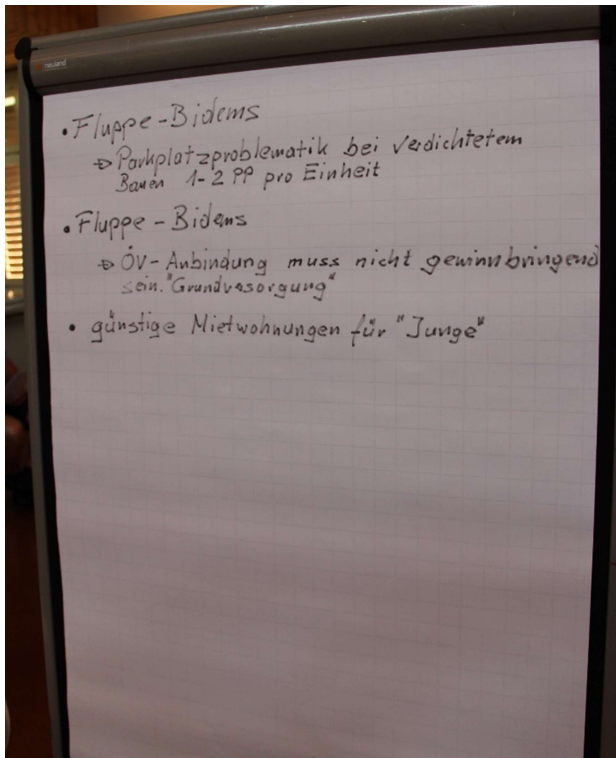 neuland
• Fluppe-Bidems
⇒ Parkplatzproblematik bei verdichtetem
Bauen 1-2 PP pro Einheit
• Fluppe-Bidems
⇒ ÖV-Anbindung muss nicht gewinnbringend
sein. "Grundvesorgung"
• günstige Mietwohnungen für "Junge"